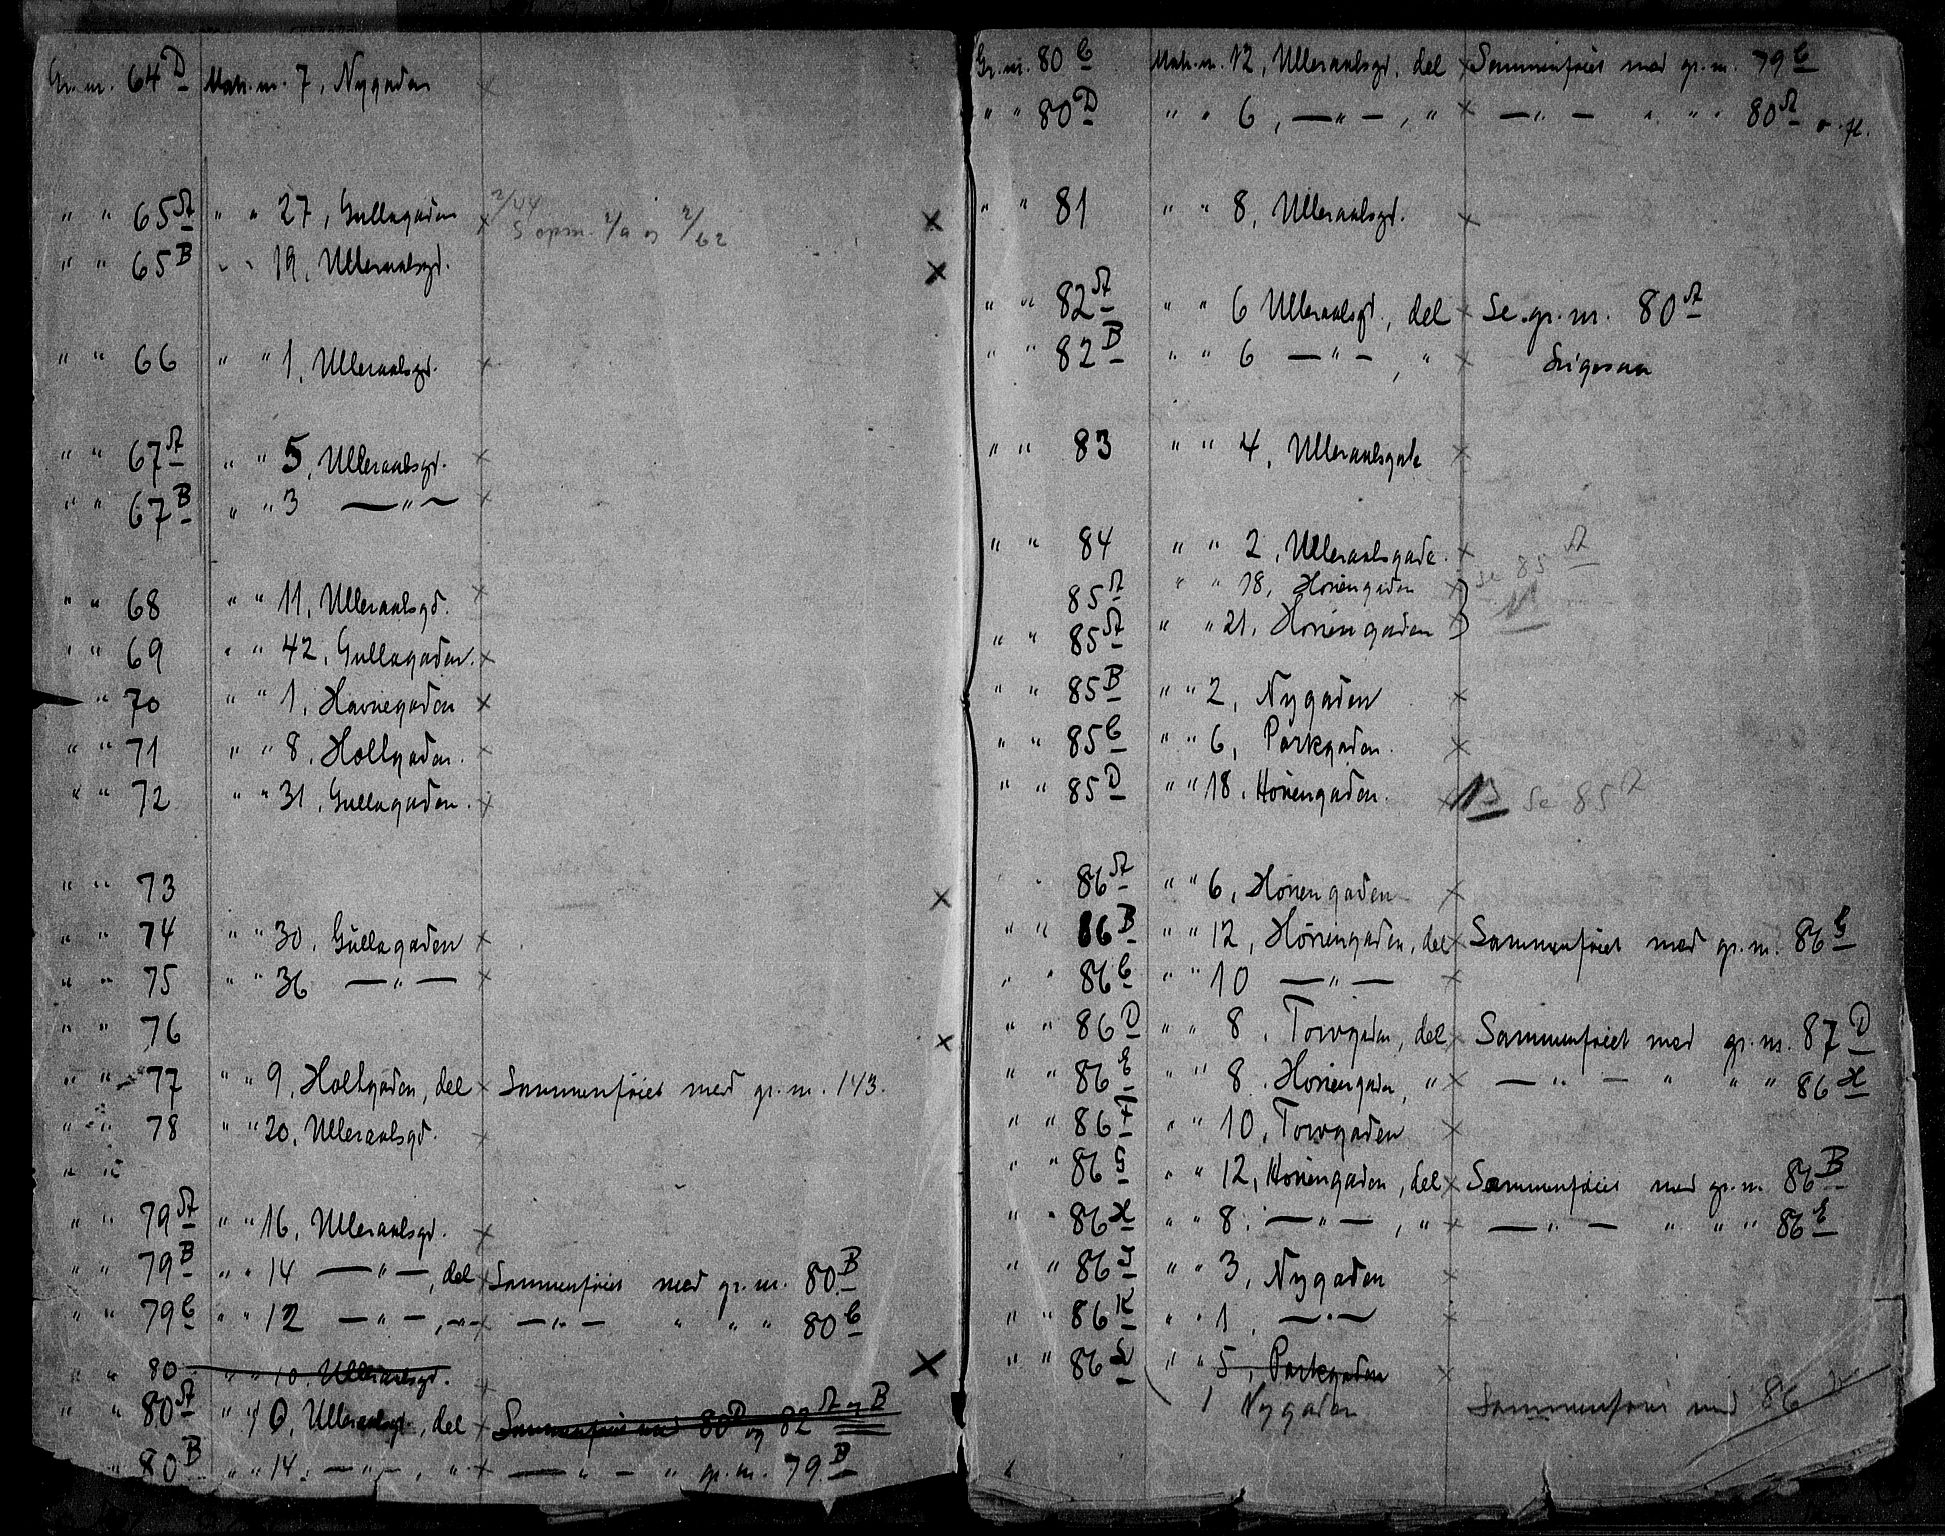 Gr. nr. 64 D Matr. nr. 7, Nygaden ×
" " 65 A " " 27, Gullagaden × ×
" " 65 B " " 19, Ulleraalsgd. ×
" " 66 " " 1, Ulleraalsgd. ×
" " 67 A " " 5, Ulleraalsgd. ×
" " 67 B " " 3 — " — ×
" " 68 " " 11, Ulleraalsgd. ×
" " 69 " " 42, Gullagaden. ×
" 70 " " 1, Havnegaden ×
" " 71 " " 8, Hollgaden. ×
" " 72 " " 31, Gullagaden. ×
" " 73 ×
" " 74 " " 30, Gullagaden ×
" " 75 " " 36 — " — ×
" " 76 ×
" " 77 " " 9, Hollgaden, del × Sammenføiet med gr. nr. 143.
" " 78 " " 20, Ulleraalsgd. ×
" "
" " 79 A " " 16, Ulleraalsgd. ×
" " 79 B " " 14 — " —, del × Sammenføiet med gr. nr. 80 B
" " 79 C " " 12 — " —, " × — " — " " " 80 C
" " 80 " " 10, Ulleraalsgd. × ×
" " 80 A " " Ulleraalsgd., del × Sammenføiet med 80 D og 82 A og B
" 80 B " " 14, — " —, " × — " — " gr. nr. 79 B
Gr. nr. 80 C Matr. nr. 12, Ulleraalsgd, del × Sammenføiet med gr. nr. 79 C
" " 80 D " " 6, — " —, " × — " — " " " 80 A o. fl.
" " 81 " " 8, Ulleraalsgd. ×
" " 82 A " " 6 Ulleraalsgd., del × Se gr. nr. 80 A
" " 82 B " " 6 — " —, " × Ligesaa
" " 83 " " 4, Ulleraalsgate ×
" " 84 " " 2, Ulleraalsgade. ×
85 A " " 18, Hønengaden × se 85 A
" " 85 A " " 21, Hønengaden ×
" " 85 B " " 2, Nygaden ×
" " 85 C " " 6, Parkgaden. ×
" " 85 D " " 18, Hønengaden. × Se 85 A
" 86 A " " 6, Hønengaden ×
" " 86 B " " 12, Hønengaden, del × Sammenføiet med gr. nr. 86 G
" " 86 C " " 10 — " — ×
" " 86 D " " 8, Torvgaden, del × Sammenføiet med gr. nr. 87 D
" " 86 E " " 8, Hønengaden, " × — " — " " " 86 H
" " 86 F " " 10, Torvgaden ×
" " 86 G " " 12, Hønengaden, del × Sammenføiet med gr. nr. 86 B
" " 86 H " " 8, — " —, " × — " — " " " 86 E
" " 86 I " " 3, Nygaden ×
" " 86 K " " 1, — " — ×
" " 86 L " " 5, Parkgaden ×
1 Nygaden Sammenføiet med 86
"